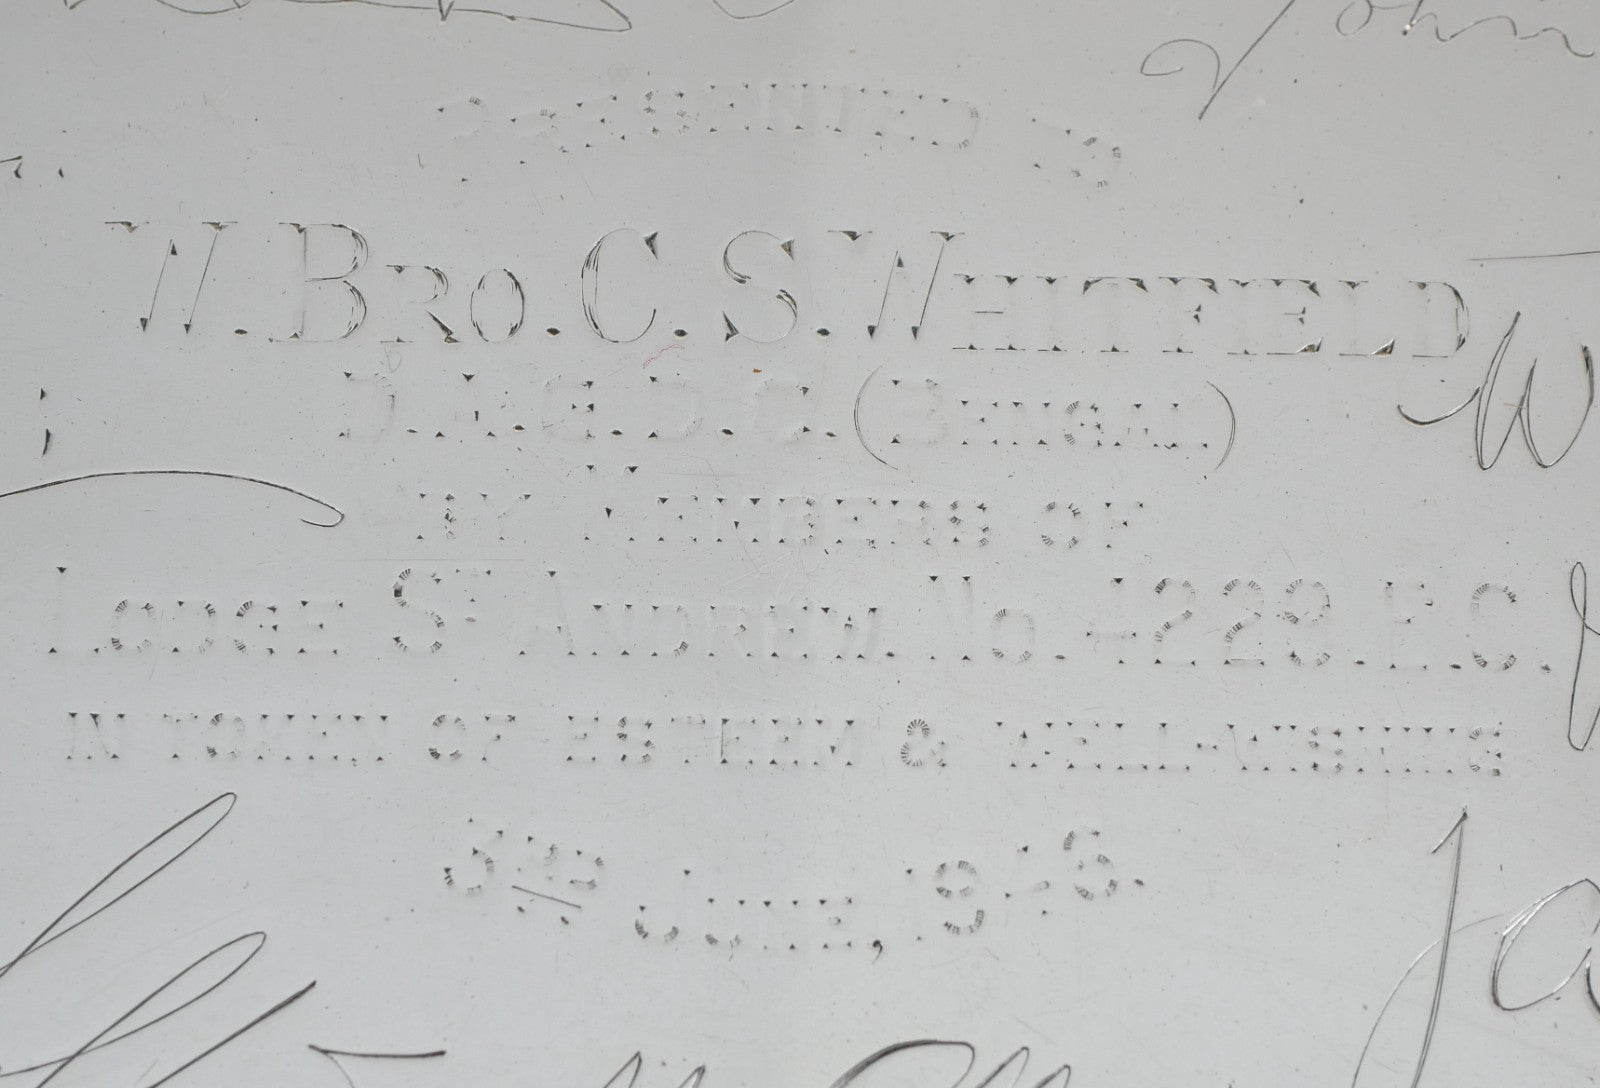 John
PRESENTED TO
W. BRO. C. S. WHITFIELD
D.A.G.D.C. (BENGAL)
BY MEMBERS OF
LODGE ST ANDREW No. 4228. E.C.
IN TOKEN OF ESTEEM & WELL-WISHES
JUNE,
W
Ja